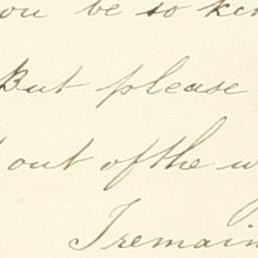 be so
But please
out of the
I remain